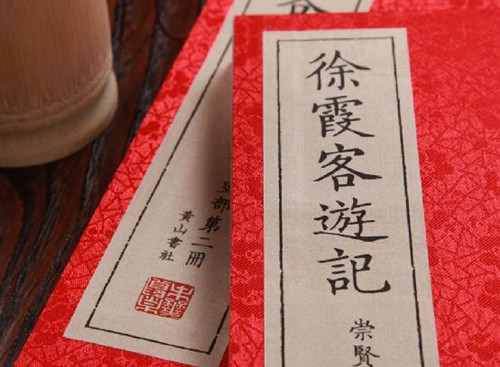 徐霞客遊記
崇賢
第二冊
黃山書社